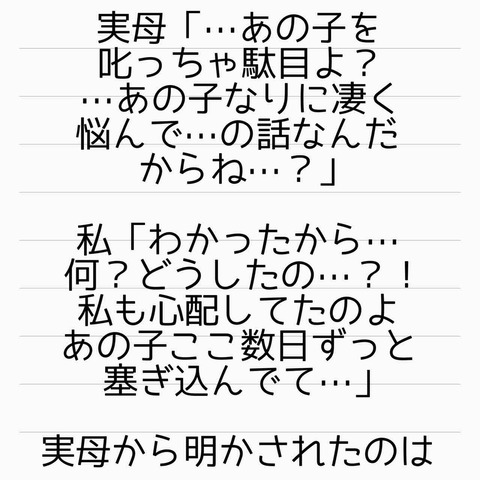 実母「…あの子を
叱っちゃ駄目よ？
…あの子なりに凄く
悩んで…の話なんだ
からね…？」
私「わかったから…
何？どうしたの…？！
私も心配してたのよ
あの子ここ数日ずっと
塞ぎ込んでて…」
実母から明かされたのは